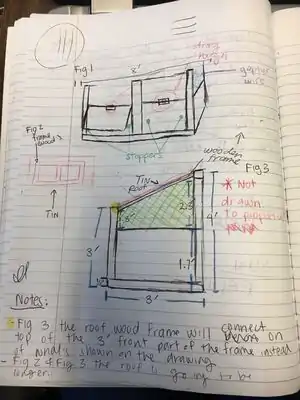 Fig 1
3'
gopher
wire
Fig 2
frame
wood
stoppers
wooden
frame
TIN
Fig 3
TIN
Roof
* Not
drawn
to proportion
2.3'
3'
4'
3'
1.7'
3'
Notes:
- Fig 3 the roof wood frame will connect
on
top of the 3' front part of the frame instead
of what's shown on the drawing
- Fig 2 & Fig 3 the roof is going to be
longer.